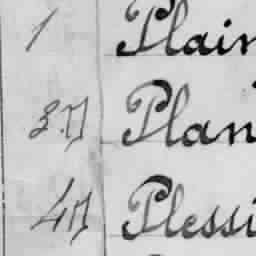 1 Plain
37 Plan
47 Plessi